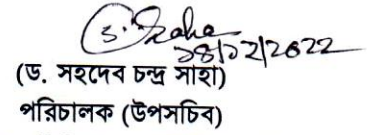 S. Saha
১৪/১২/2022
(ড. সহদেব চন্দ্র সাহা)
পরিচালক (উপসচিব)